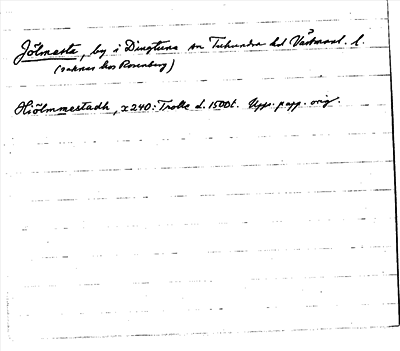 Jölmesta, by i Dingtuna sn Tuhundra hd Västmanl. l.
(saknas hos Rosenberg)
Hiölmmestadh, x 240: Trolle d. 1500t. Upps. papp. orig.